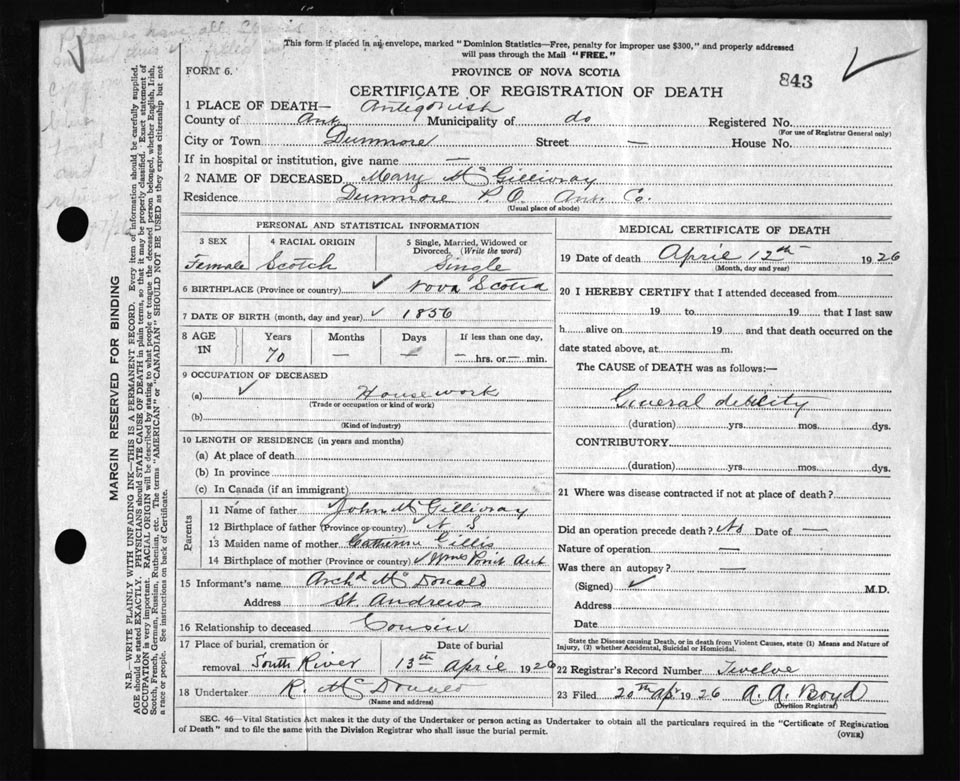 Please have all
This form if placed in an envelope, marked "Dominion Statistics—Free, penalty for improper use $300," and properly addressed
will pass through the Mail "FREE."
FORM 6.
PROVINCE OF NOVA SCOTIA
843
CERTIFICATE OF REGISTRATION OF DEATH
1 PLACE OF DEATH— Antigonish
County of Ant Municipality of do Registered No.
(For use of Registrar General only)
City or Town Dunmore Street — House No.
If in hospital or institution, give name —
2 NAME OF DECEASED Mary McGillivray
Residence Dunmore P.O. Ant. Co.
(Usual place of abode)
PERSONAL AND STATISTICAL INFORMATION
3 SEX 4 RACIAL ORIGIN 5 Single, Married, Widowed or Divorced, (Write the word)
Female Scotch Single
6 BIRTHPLACE (Province or country) ✓ Nova Scotia
7 DATE OF BIRTH (month, day and year) ✓ 1856
8 AGE IN Years Months Days If less than one day,
70 — — — hrs. or — min.
9 OCCUPATION OF DECEASED
(a) ✓ Housework
(Trade or occupation or kind of work)
(b)
(Kind of industry)
10 LENGTH OF RESIDENCE (in years and months)
(a) At place of death
(b) In province
(c) In Canada (if an immigrant)
Parents
11 Name of father John McGillivray
12 Birthplace of father (Province or country) ✓ N S
13 Maiden name of mother Catherine Gillis
14 Birthplace of mother (Province or country) ✓ Point Ant
15 Informant's name Archd McDonald
Address St. Andrews
16 Relationship to deceased Cousin
17 Place of burial, cremation or removal South River
Date of burial 13th April 1926
18 Undertaker R. McDonald
(Name and address)
MEDICAL CERTIFICATE OF DEATH
19 Date of death April 12th 1926
(Month, day and year)
20 I HEREBY CERTIFY that I attended deceased from
19 to 19 that I last saw
h alive on 19 and that death occurred on the
date stated above, at m.
The CAUSE of DEATH was as follows:—
General debility
(duration) yrs. mos. dys.
CONTRIBUTORY
(duration) yrs. mos. dys.
21 Where was disease contracted if not at place of death?
Did an operation precede death? No Date of —
Nature of operation —
Was there an autopsy? —
(Signed) ✓ M.D.
Address
Date
State the Disease causing Death, or in death from Violent Causes, state (1) Means and Nature of
Injury, (2) whether Accidental, Suicidal or Homicidal.
22 Registrar's Record Number Twelve
23 Filed 20th Apr 1926 A. A. Boyd
(Division Registrar)
SEC. 46—Vital Statistics Act makes it the duty of the Undertaker or person acting as Undertaker to obtain all the particulars required in the "Certificate of Registration
of Death" and to file the same with the Division Registrar who shall issue the burial permit.
(OVER)
MARGIN RESERVED FOR BINDING
N.B.—WRITE PLAINLY WITH UNFADING INK—THIS IS A PERMANENT RECORD. Every item of information should be carefully supplied.
AGE should be stated EXACTLY. PHYSICIANS should STATE CAUSE OF DEATH in plain terms, so that it may be properly classified. Exact statement of
OCCUPATION is very important. RACIAL ORIGIN will be described by stating to what people or tongue the deceased person belonged, whether English, Irish,
Scotch, French, German, Russian, Ruthenian, etc. The terms "AMERICAN" or "CANADIAN" SHOULD NOT BE USED as they express citizenship but not
a race or people. See instructions on back of Certificate.